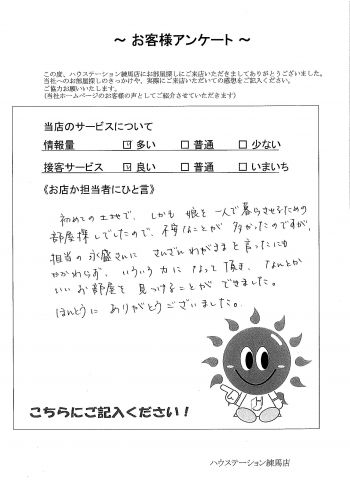 ～ お客様アンケート ～
この度、ハウステーション練馬店にお部屋探しにご来店いただきましてありがとうございました。
当社へのお部屋探しのきっかけや、実際にご来店いただいての感想をご記入ください。
ご協力お願いいたします。
(当社ホームページのお客様の声としてご紹介させていただきます)
当店のサービスについて
情報量 ☑ 多い □ 普通 □ 少ない
接客サービス ☑ 良い □ 普通 □ いまいち
《お店か担当者にひと言》
初めての土地で、しかも娘を一人で暮らさせるための
部屋探しでしたので、不安なことが多かったのですが、
担当の永盛さんに さんざんわがままを言ったにも
かかわらず、いろいろ力になって頂き、なんとか
いいお部屋を見つけることができました。
ほんとうにありがとうございました。
こちらにご記入ください！
ハウステーション練馬店